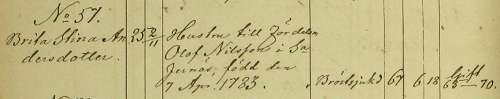 No 57.
Brita Stina An
dersdotter.
25 2/11
Hustru till Jordelen
Olof Nilsson i La
född den
7 Apr. 1783.
Bröstsjukd 67 6 18 gift 68 70.